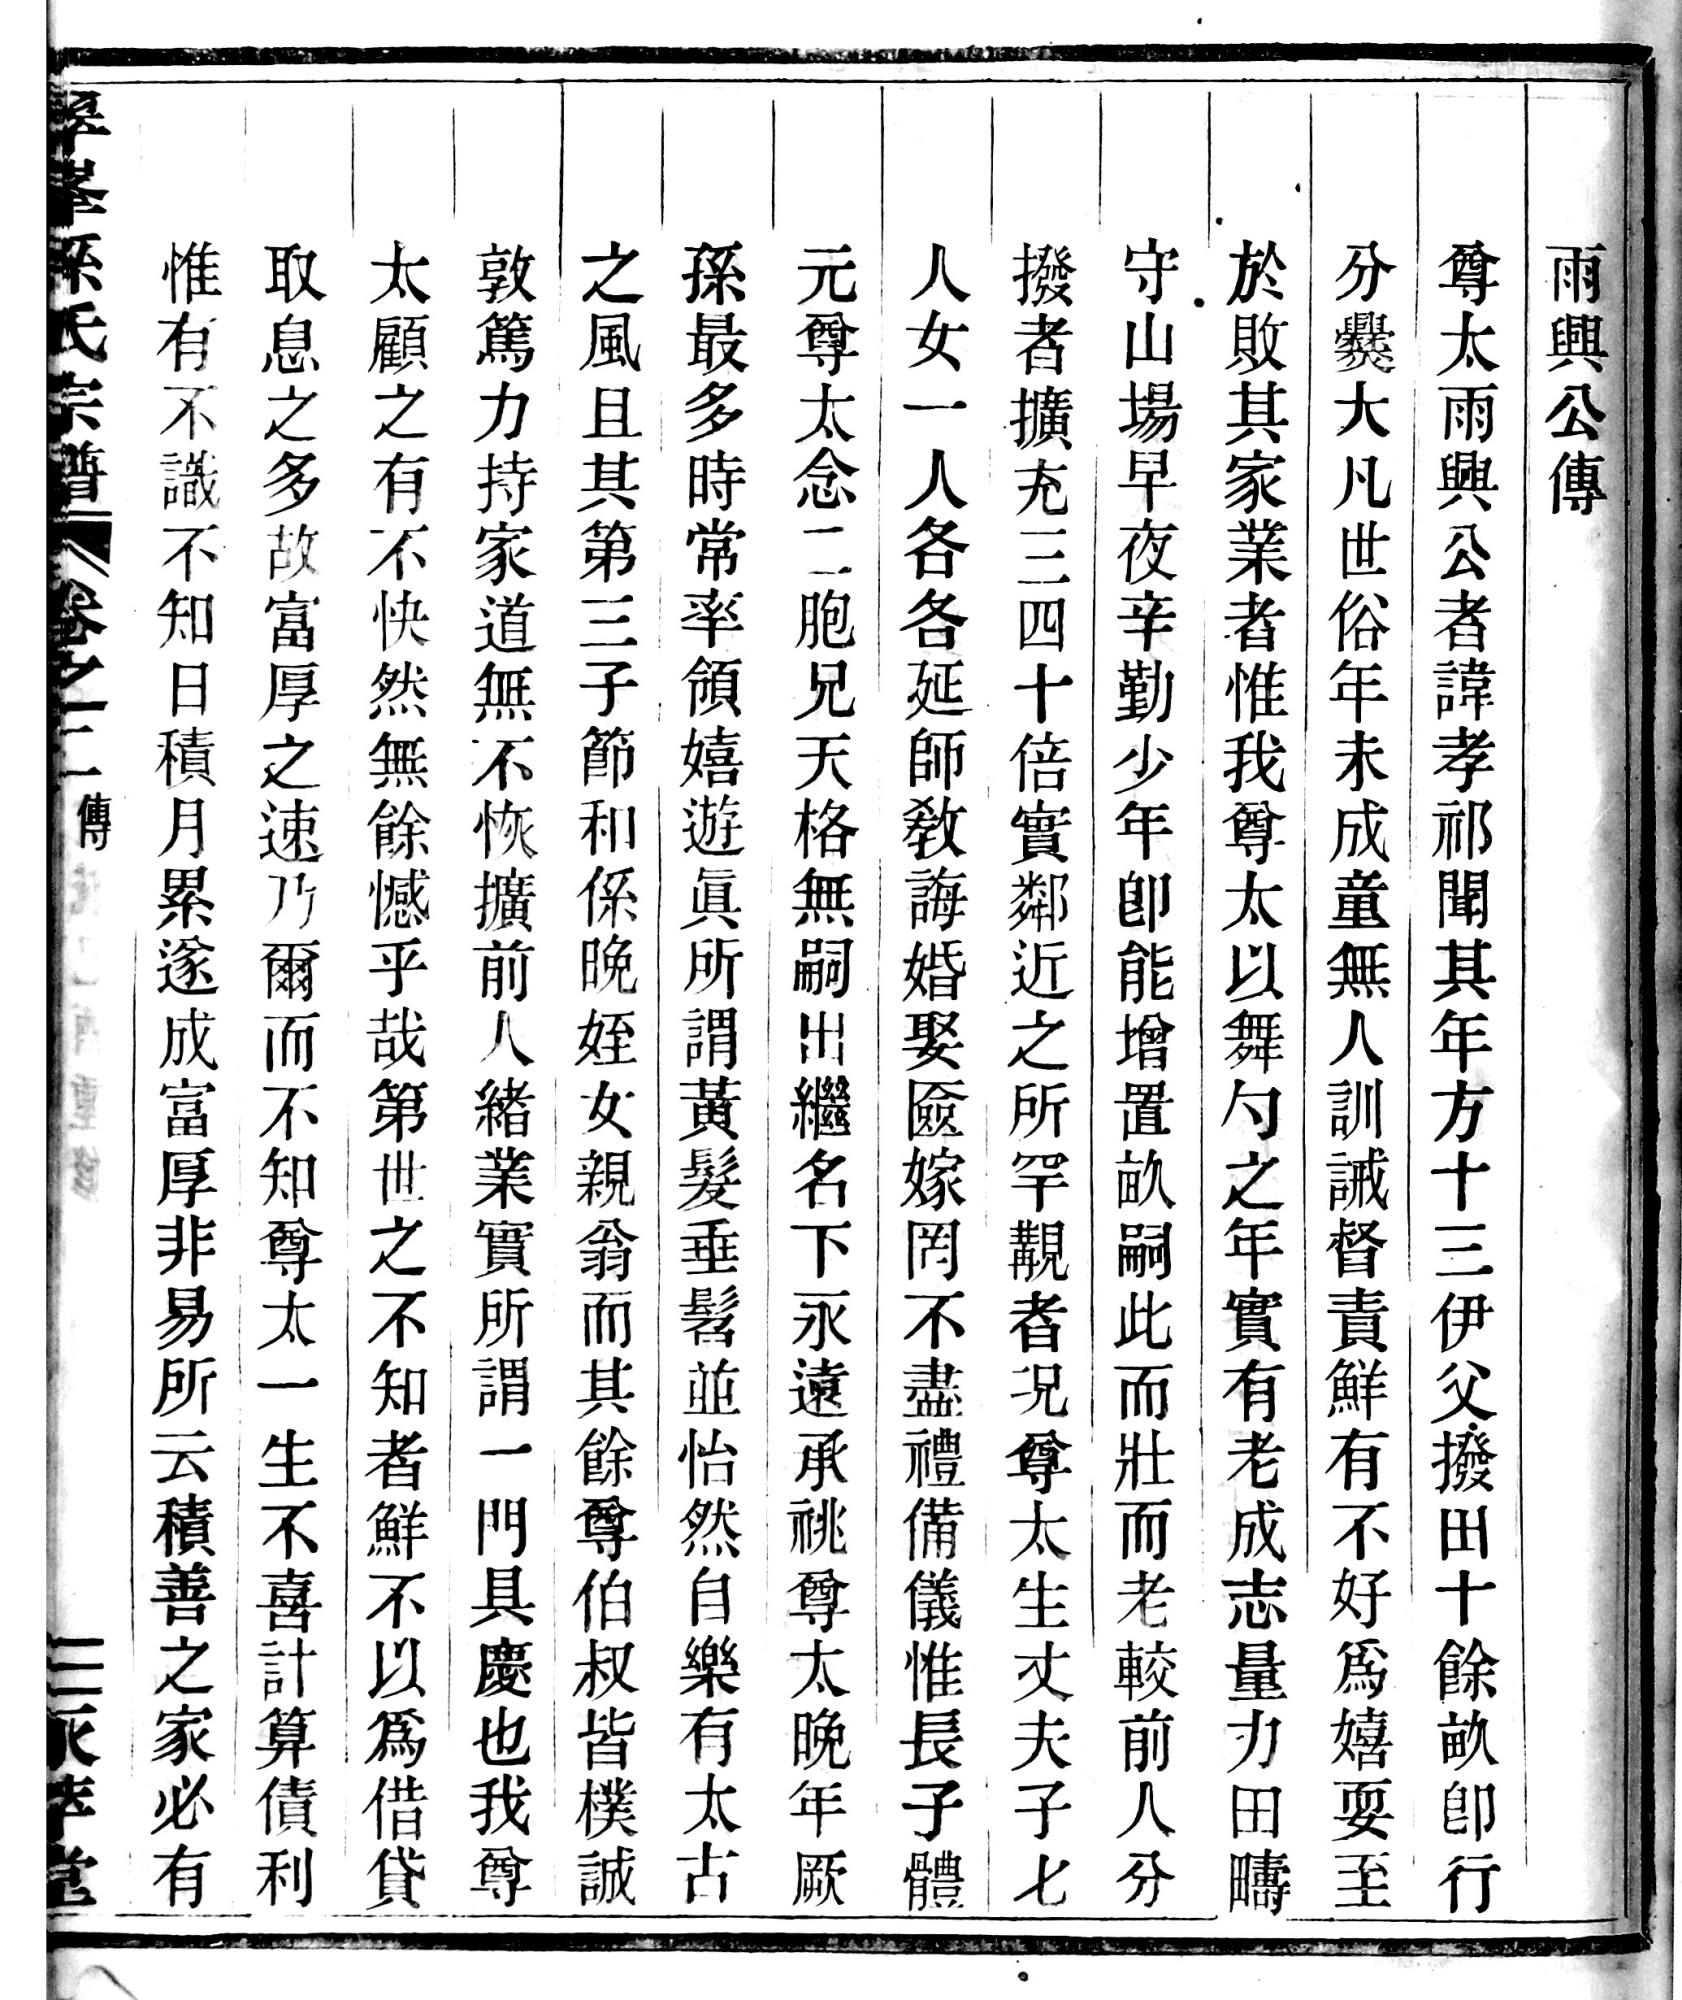 雨興公傳
尊太雨興公者諱孝祁聞其年方十三伊父撥田十餘畝卽行
分爨大凡世俗年未成童無人訓誡督責鮮有不好爲嬉耍至
於敗其家業者惟我尊太以舞勺之年實有老成志量力田疇
守山場早夜辛勤少年卽能增置畝嗣此而壯而老較前人分
撥者擴充三四十倍實鄰近之所罕覯者況尊太生丈夫子七
人女一人各各延師敎誨婚娶匳嫁罔不盡禮備儀惟長子體
元尊太念二胞兄天格無嗣出繼名下永遠承祧尊太晚年厥
孫最多時常率領嬉遊眞所謂黃髮垂髫並怡然自樂有太古
之風且其第三子節和係晚姪女親翁而其餘尊伯叔皆樸誠
敦篤力持家道無不恢擴前人緒業實所謂一門具慶也我尊
太顧之有不快然無餘憾乎哉第世之不知者鮮不以爲借貸
取息之多故富厚之速乃爾而不知尊太一生不喜計算債利
惟有不識不知日積月累遂成富厚非易所云積善之家必有
孫氏宗譜 卷之二 傳 三 堂